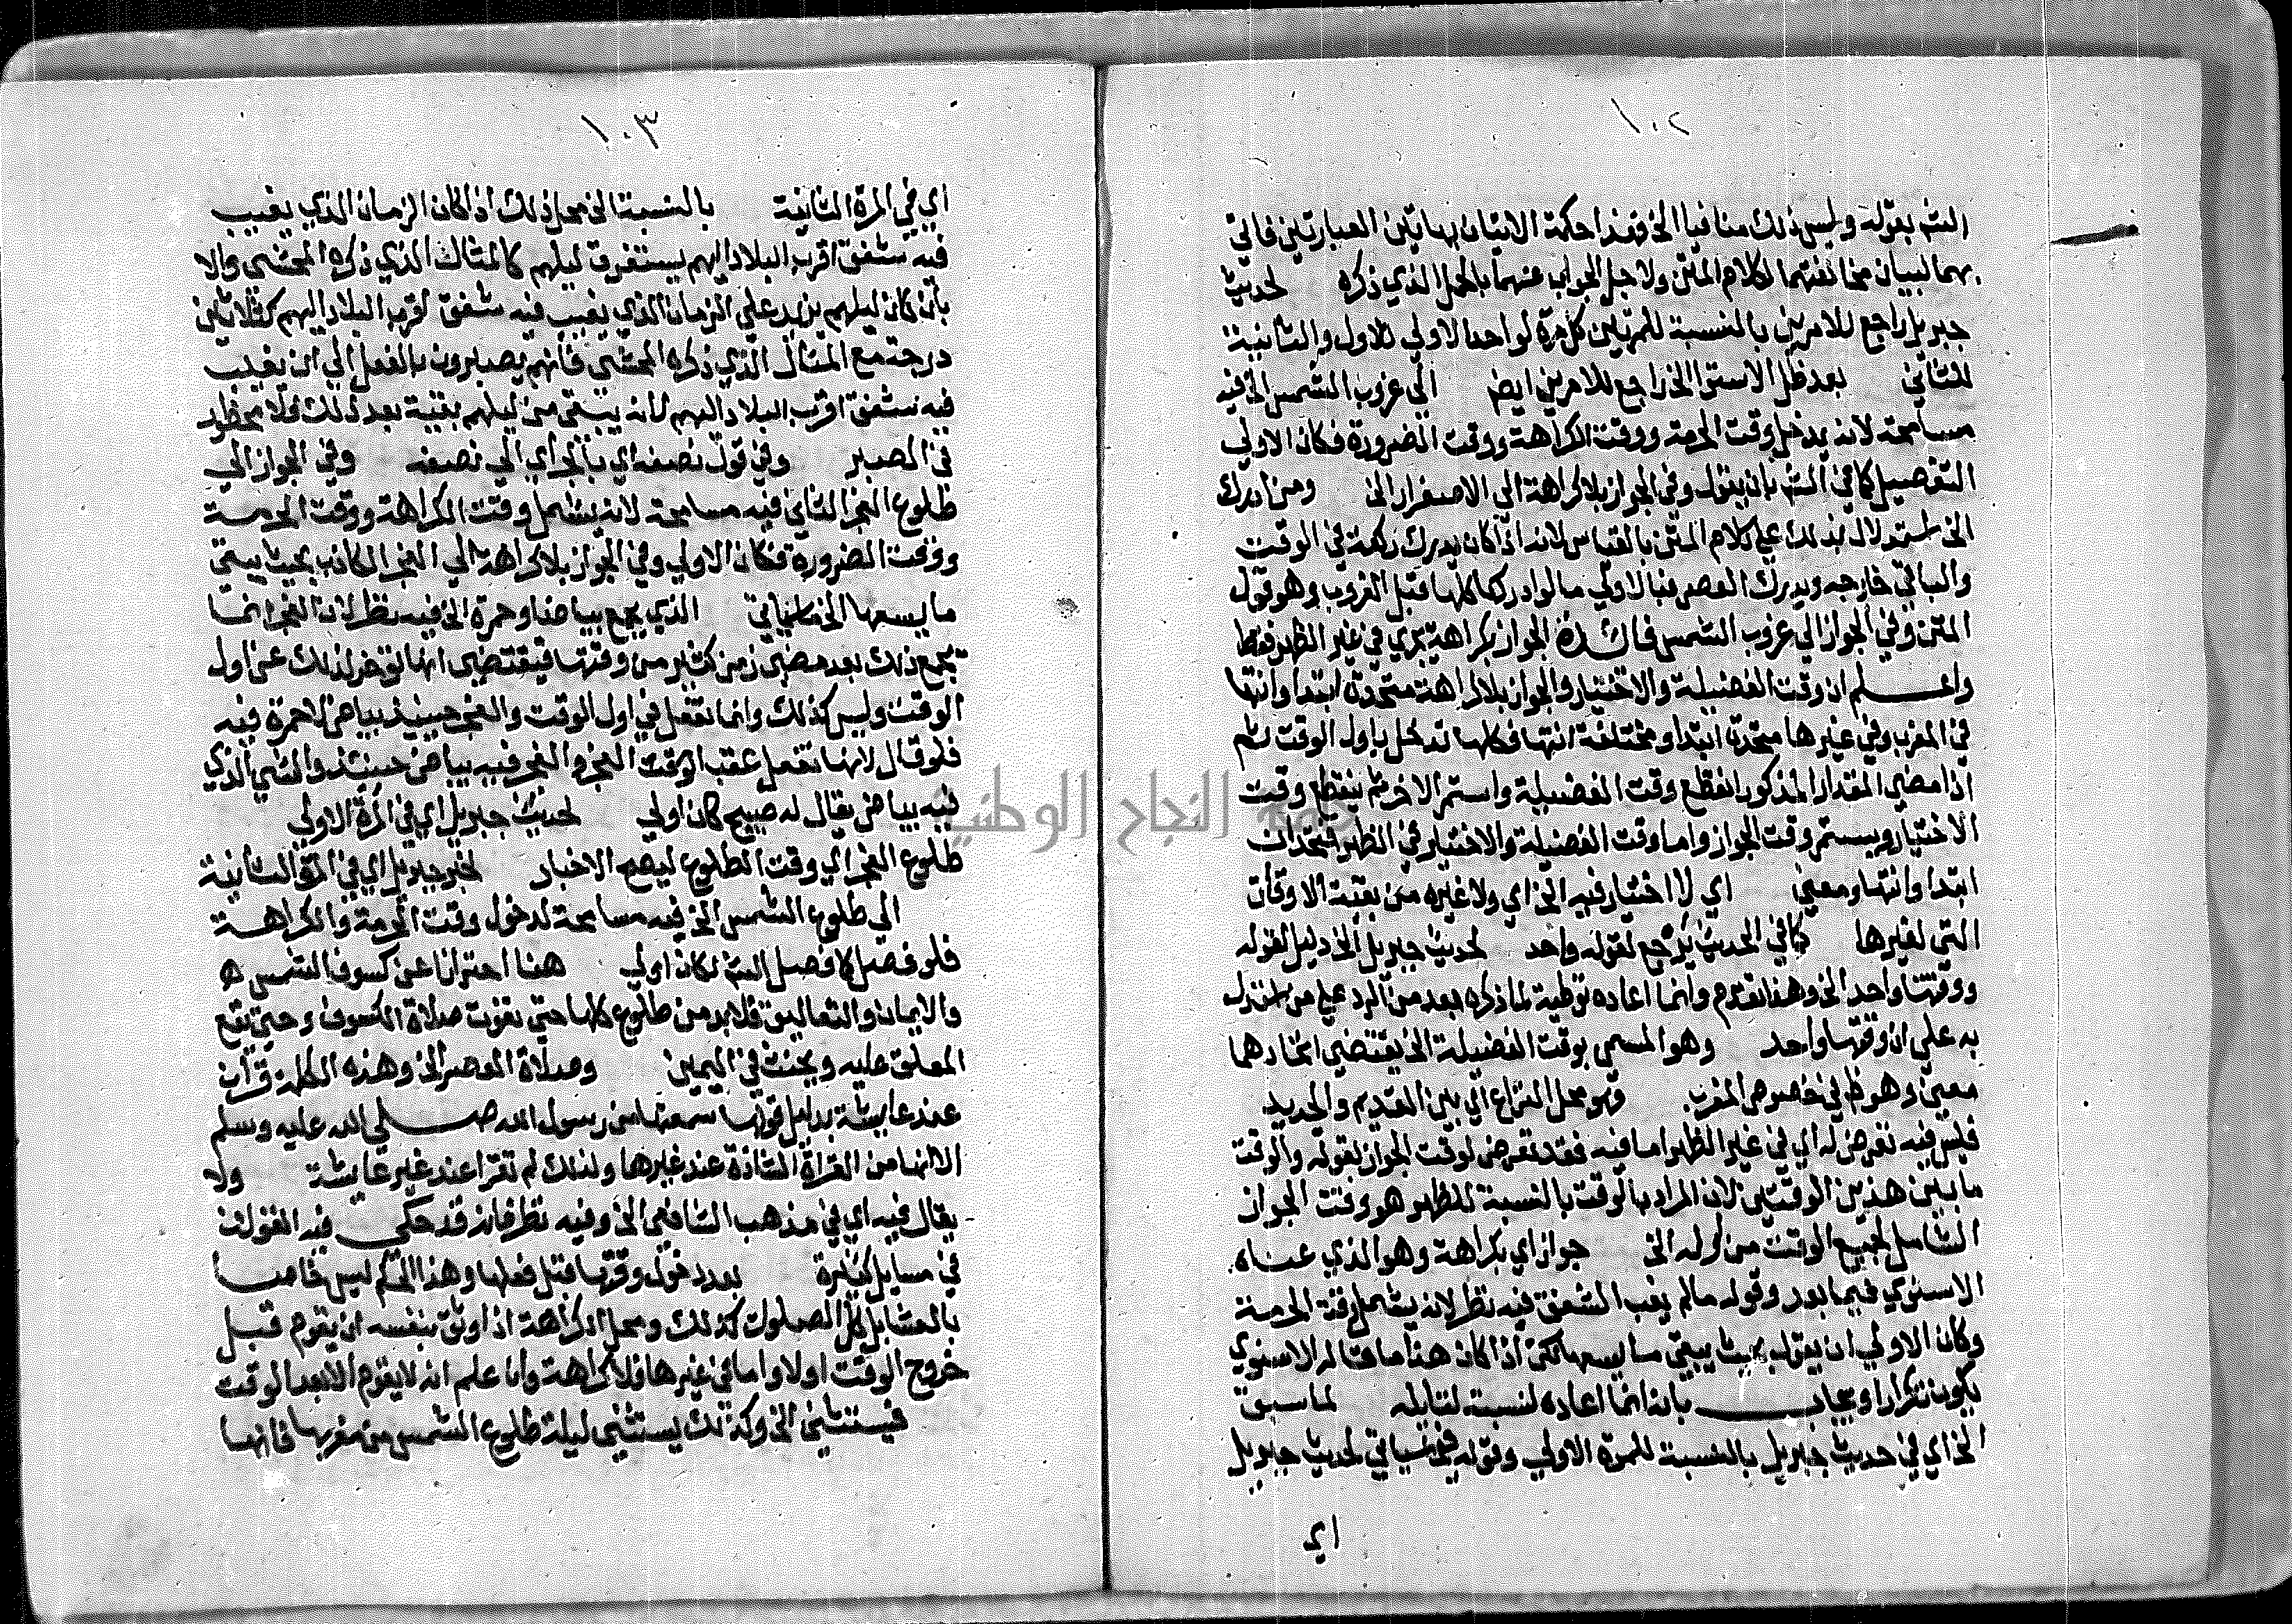 ١٠٢
الشم بقوله وليس ذلك منافيا الخ فهذا حكمة الاتيان بهاتين العبارتين فاتي
بهما لبيان مخالفتهما لكلام المتن ولاجل الجواب عنهما بالحمل الذي ذكره لحديث
جبريل راجع للامرين بالنسبة للمرتين كل مرة لواحد الاولي للاول والثانية
للثاني بعد ظل الاستوا الخ راجع للامرين ايض الي غروب الشمس الخ فيه
مسامحة لانه يدخل وقت الحرمة ووقت الكراهة ووقت الضرورة فكان الاولي
التفصيل كما في الشم بان يقول وفي الجواز بلا كراهة الي الاصفرار الخ ومن ادرك
الخ استدلال بذلك علي كلام المتن بالقياس لانه اذا كان يدرك ركعة في الوقت
والباقي خارجه ويدرك العصر فبالاولي ما لو ادركها كلها قبل الغروب وهو قول
المتن وفي الجواز الي غروب الشمس فائدة الجواز بكراهة يجري في غير الظهر فقط
واعلم ان وقت الفضيلة والاختيار والجواز بلا كراهة متحدة ابتدا وانتها
في المغرب وفي غيرها متحدة ابتدا ومختلفة انتها فكلها تدخل باول الوقت ثم
اذا مضي المقدار المذكور انقطع وقت الفضيلة واستمر الاخر ثم ينقطع وقت
الاختيار ويستمر وقت الجواز واما وقت الفضيلة والاختيار في الظهر متحدان
ابتدا وانتها ومعني اي لا اختيار فيه الخ اي ولا غيره من بقية الاوقات
التي لغيرها كما في الحديث يرجع لقوله واحد لحديث جبريل الخ دليل لقوله
ووقتها واحد الخ وهذا تقدم وانما اعاده توطية لما ذكره بعد من الرد علي من استدل
به علي ان وقتها واحد وهو المسمي بوقت الفضيلة الخ يقتضي اتحادها
معني وهو في خصوص المغرب وهو محل النزاع اي بين القديم والجديد
فليس فيه تعرض له اي في غير الظهر اما فيه فقد تعرض لوقت الجواز بقوله والوقت
ما بين هذين الوقتين لان المراد بالوقت بالنسبة للظهر هو وقت الجواز
الشامل لجميع الوقت من اوله الخ جواز اي بكراهة وهو الذي عناه
الاسنوي فيما بعد وقوله ما لم يغب الشفق فيه نظر لانه يشمل وقت الحرمة
وكان الاولي ان يقول بحيث يبقي ما يسعها لكن اذا كان هذا ما قاله الاسنوي
يكون تكرارا ويجاب بانه انما اعاده لنسبة لقايله لما سبق
الخ اي في حديث جبريل بالنسبة للمرة الاولي وقوله لحديث جبريل
اي
١٠٣
اي في المرة الثانية بالنسبة الخ محل ذلك اذا كان الزمان الذي يغيب
فيه شفق اقرب البلاد اليهم يستغرق ليلهم كالمثال الذي ذكره المحشي والا
بان كان ليلهم يزيد علي الزمان الذي يغيب فيه شفق اقرب البلاد اليهم كثلاثين
درجة مع المثال الذي ذكره المحشي فانهم يصبرون بالفعل الي ان يغيب
فيه شفق اقرب البلاد اليهم لانه يبقي من ليلهم بقية بعد ذلك ولا محظور
في الصبر وفي قول نصفه اي بالجر اي الي نصفه وفي الجواز الي
طلوع الفجر الثاني فيه مسامحة لانه يشمل وقت الكراهة ووقت الحرمة
ووقت الضرورة فكان الاولي وفي الجواز بلا كراهة الي الفجر الكاذب بحيث يبقي
ما يسعها الخ الذي يجمع بياضا وحمرة الخ فيه نظر لان الفجر انما
يجمع ذلك بعد مضي زمن كثير من وقتها فيقتضي انها توخر لذلك عن اول
الوقت وليس كذلك وانما تفعل في اول الوقت والفجر حينيذ بياض لا حمرة فيه
فلو قال لانها تفعل عقب الوقت الفجر والفجر فيه بياض حينئذ والشي الذي
فيه بياض يقال له صبيح كان اولي لحديث جبريل اي في المرة الاولي
طلوع الفجر اي وقت الطلوع ليصح الاخبار لخبر جبريل اي في المرة الثانية
الي طلوع الشمس الخ فيه مسامحة لدخول وقت الحرمة والكراهة
فلو فصل كما فصل الشم لكان اولي هنا احترازا عن كسوف الشمس
والايمان والتعاليق فلا بد من طلوع كلها حتي تفوت صلاة الكسوف وحتي يقع
المعلق عليه ويحنث في اليمين وصلاة العصر الخ وهذه الكلمة قران
عند عايشة بدليل قولها سمعتها من رسول الله صلي الله عليه وسلم
الا انها من القراة الشاذة عند غيرها ولذلك لم تقرا عند غير عايشة ولا
يقال فيه اي في مذهب الشافعي الخ وفيه نظر فانه قد حكي فيه القولان
في مسايل كثيرة بعد دخول وقتها قبل فعلها وهذا الحكم ليس خاصا
بالعشا بل كل الصلوات كذلك ومحل الكراهة اذا وثق بنفسه ان يقوم قبل
خروج الوقت اولا واما في غيرها فلا كراهة وان علم انه لا يقوم الا بعد الوقت
فيستثني الخ وكذلك يستثني ليلة طلوع الشمس من مغربها فانها
جامعة النجاح الوطنية